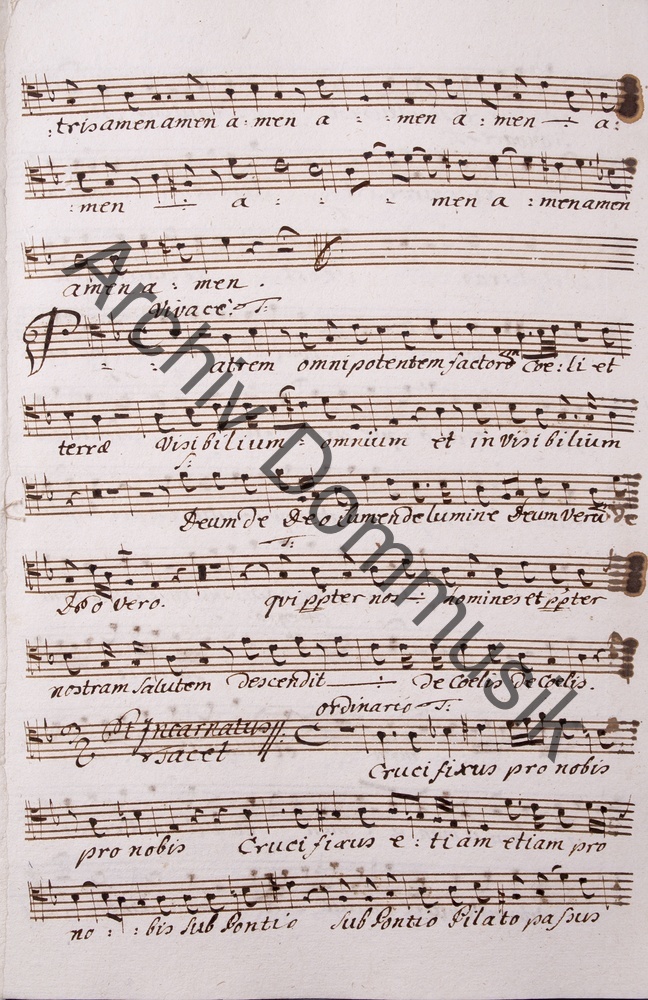 :tris amen amen a: men a : : men a : men -:- a:
:men -:- a : : : men a : men amen
amen a : men .
Vivacè. T:
Patrem omnipotentem factorē Coe : li et
terræ Visibilium : omnium et in visibilium
S:
Deum de Deo lumen de lumine Deum verū de
Deo vero. qui ppter nos -:- homines et ppter
T:
nostram salutem descendit -:- de Coelis de Coelis.
ordinario T:
Et Incarnatus
tacet
Crucifixus pro nobis
pro nobis Crucifixus e : tiam etiam pro
no : : bis sub Pontio sub Pontio Pilato passus
Archiv Dommusik